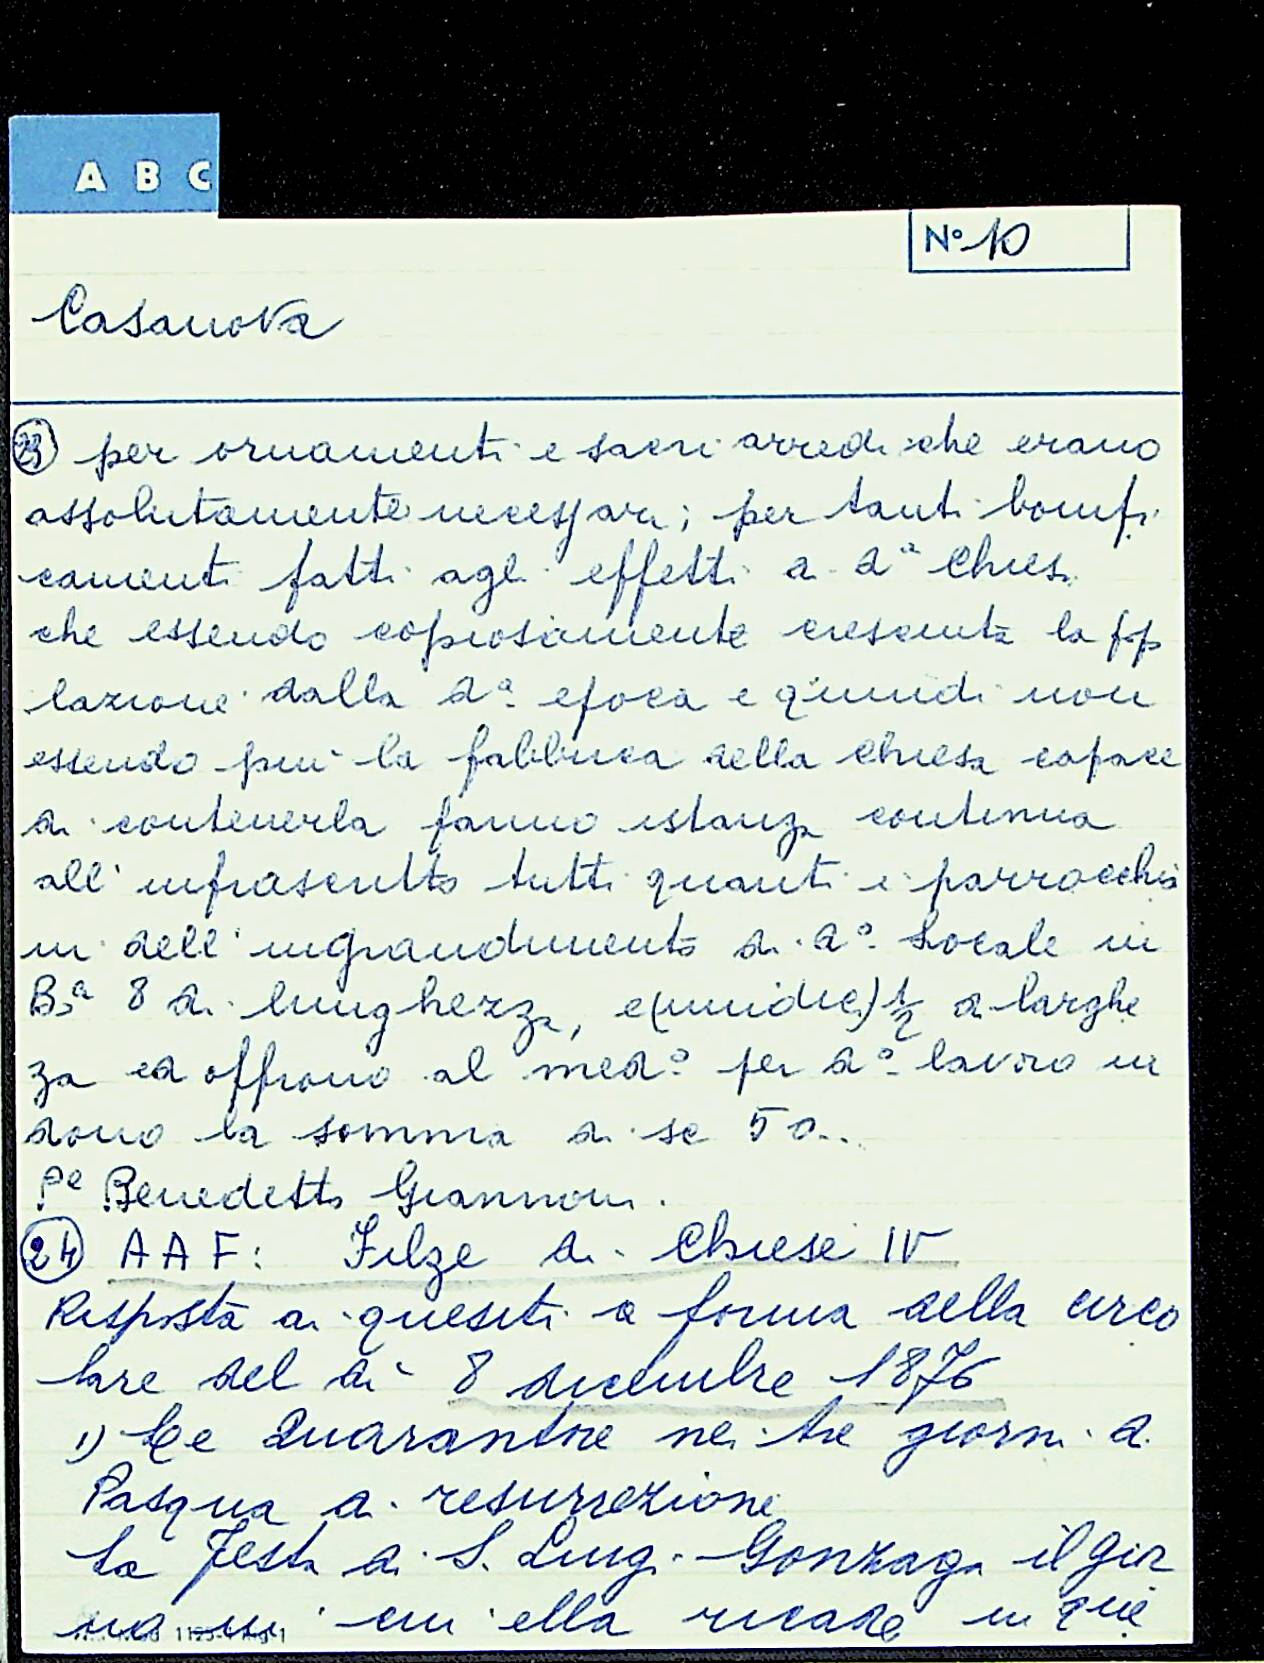 A B C
N° 10
Casanova
23 per ornamenti e sacri arredi che erano
assolutamente necessari; per tanti bonifi
camenti fatti agli effetti di d.ª Chiesa
che essendo copiosamente cresciuta la pop
lazione dalla d.ª epoca e quindi non
essendo più la fabbrica della Chiesa capace
di contenerla fanno istanza continua
all'infrascritto tutti quanti i parrocchia
ni dell'ingrandimento di d.º Locale in
B.ª 8 di lunghezza, e (undici) ½ di larghe
za ed offrono al med.º per d.º lavoro in
dono la somma di sc 50..
Pe Benedetto Giannoni.
24 AAF: Filze di Chiese IV
Risposta ai quesiti a forma della circo
lare del dì 8 dicembre 1876
1) Le Quarantore nei tre giorni di
Pasqua di resurrezione
La Festa di S. Luigi Gonzaga il gior
no in cui ella ricade in que